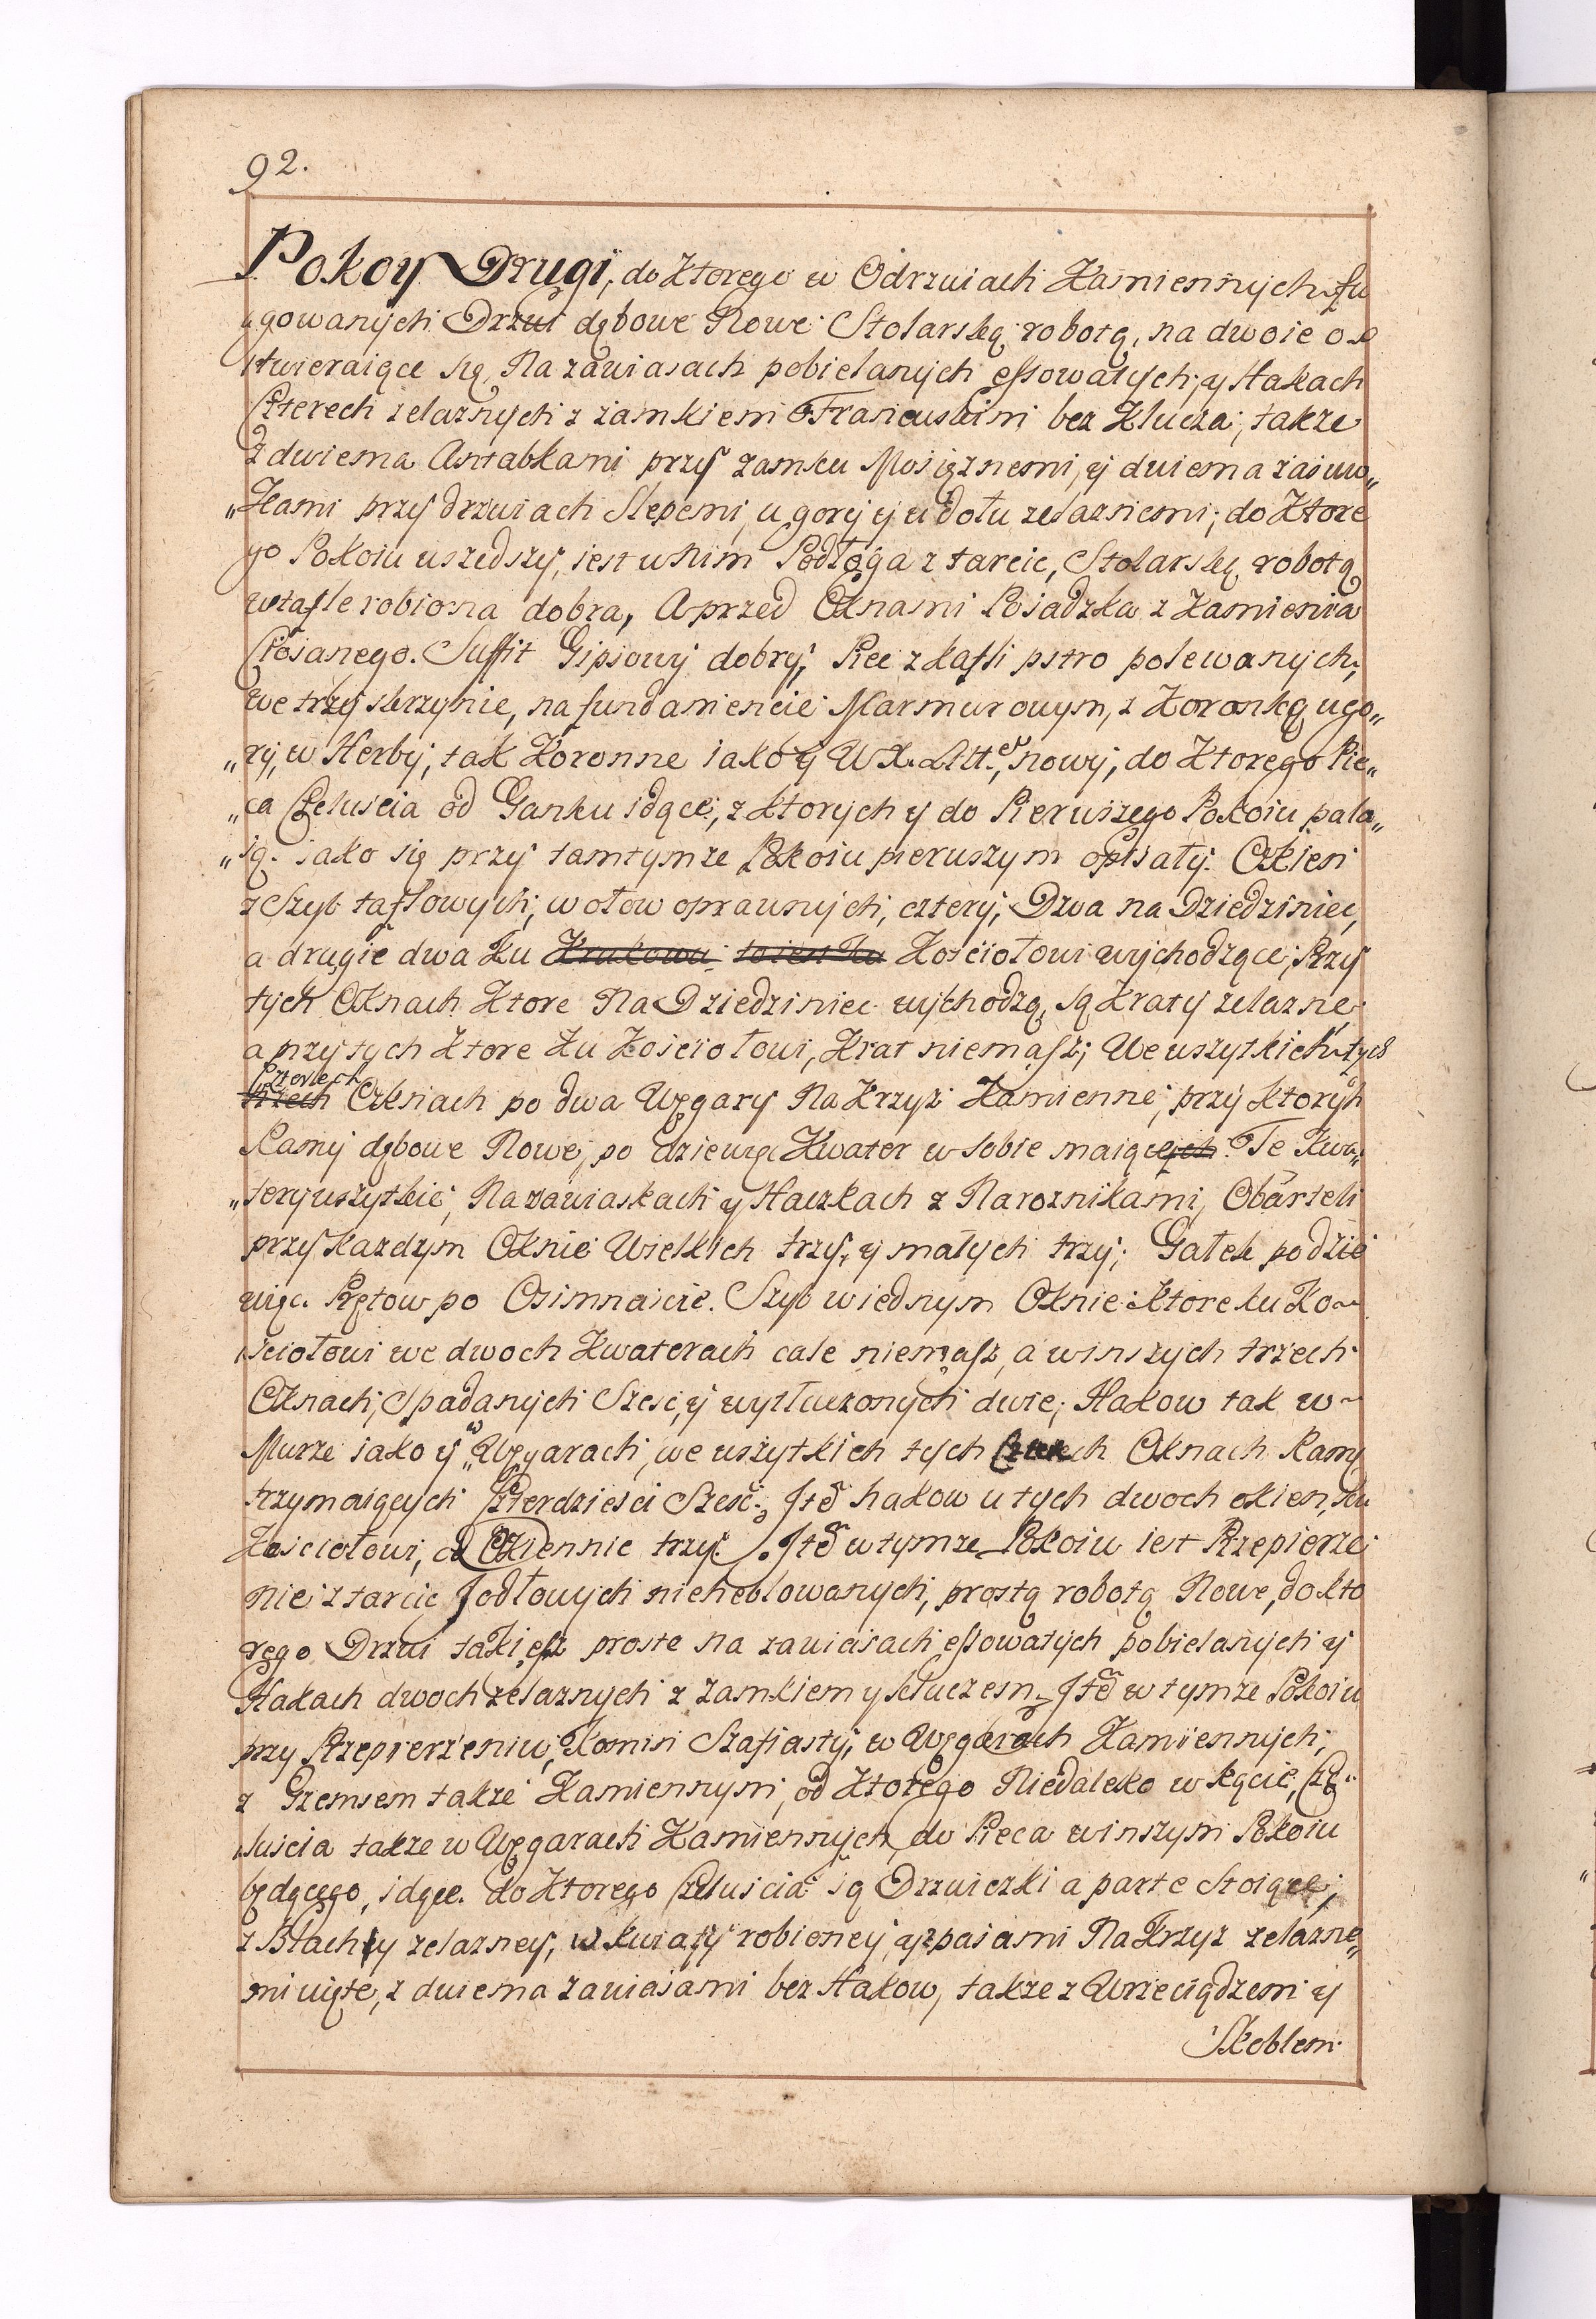 92.
Pokoy Drugi, do Ktorego w Odrzwiach Kamiennych fu
gowanych Drzwi dębowe Nowe Stolarską robotą, na dwoie o
twieraiące się, Na zawiasach pobielanych essowatych, y Hakach
Czterech zelaznych z zamkiem Francuskim bez Klucza, takze
z dwiema Antabkami przy zamku Mosiąznemi, y dwiema zasuw„
„Kami przy drzwiach Slepemi, u gory y u dołu zelaznemi; do Ktore
go Pokoiu wszedszy, iest w Nim Podłoga z tarcic, Stolarską robotą
w tafle robiona dobra, A przed Oknami Posadzka z Kamienia
Ciosanego. Suffit Gipsowy dobry, Piec z kafli pstro polewanych,
we trzy skrzynie, na fundamencie Marmurowym, z Koronką u go„
„ry, w Herby, tak Koronne iako y W. X. Litt., nowy, do Ktorego Pie„
„ca Czeluscia od Ganku idące, z ktorych y do Pierwszego Pokoiu pala„
„ią. iako się przy tamtymze Pokoiu pierwszym opisały. Okien
z Szyb taflowych, w ołow oprawnych, cztery, Dwa na Dziedziniec,
a drugie dwa Ku Krakowu to iest Ku Kościołowi wychodzące, Przy
tych Oknach Ktore Na Dziedziniec wychodzą, są Kraty zelazne
a przy tych Ktore Ku Kościołowi, Krat niemasz; We wszytkich tych
Czterech
trzech Oknach po dwa Węgary Na Krzyz Kamienne, przy ktorych
Ramy dębowe Nowe, po dziewięć Kwater w sobie maiących. Te Kwa„
„tery wszytkie, Na zawiaskach y Haczkach z Naroznikami, Obarteli
przy kazdym Oknie Wielkich trzy, y małych trzy; Gałek po dzie
więć. Prętow po Osimnaście. Szyb w iednym Oknie Ktore ku Ko~
sciołowi we dwoch Kwaterach cale niemasz, a w inszych trzech
Oknach, Spadanych Szesc, y wytłuczonych dwie, Hakow tak w~
Murze iako y w Węgarach, we wszytkich tych Czterech Oknach Ramy
trzymaiących Czterdzieści Sześć. Itē hakow u tych dwoch okien, ku
Kosciołowi, od Okiennic trzy. Itē w tymze Pokoiu iest Przepierze
nie z tarcic Jodłowych nieheblowanych, prostą robotą Nowe, do kto
rego Drzwi takiesz proste na zawiasach essowatych pobielanych y
Hakach dwoch zelaznych z zamkiem y kluczem. Itē w tymze Pokoiu
przy Przepierzeniu, Komin Szafiasty, w Węgarach Kamiennych,
z Gzemsem takze Kamiennym, od Ktorego Niedaleko w kącie, Cze
luscia takze w Węgarach Kamiennych, do Pieca w inszym Pokoiu
będącego, idące. do Ktorego Czeluscia są Drzwiczki a parte Stoiące;
z Blachy zelazney, w kwiaty robioney, y z pasami Na Krzyz zelazne„
mi więte, z dwiema zawiasami bez Hakow, takze z Wrzeciądzem y
Skoblem.